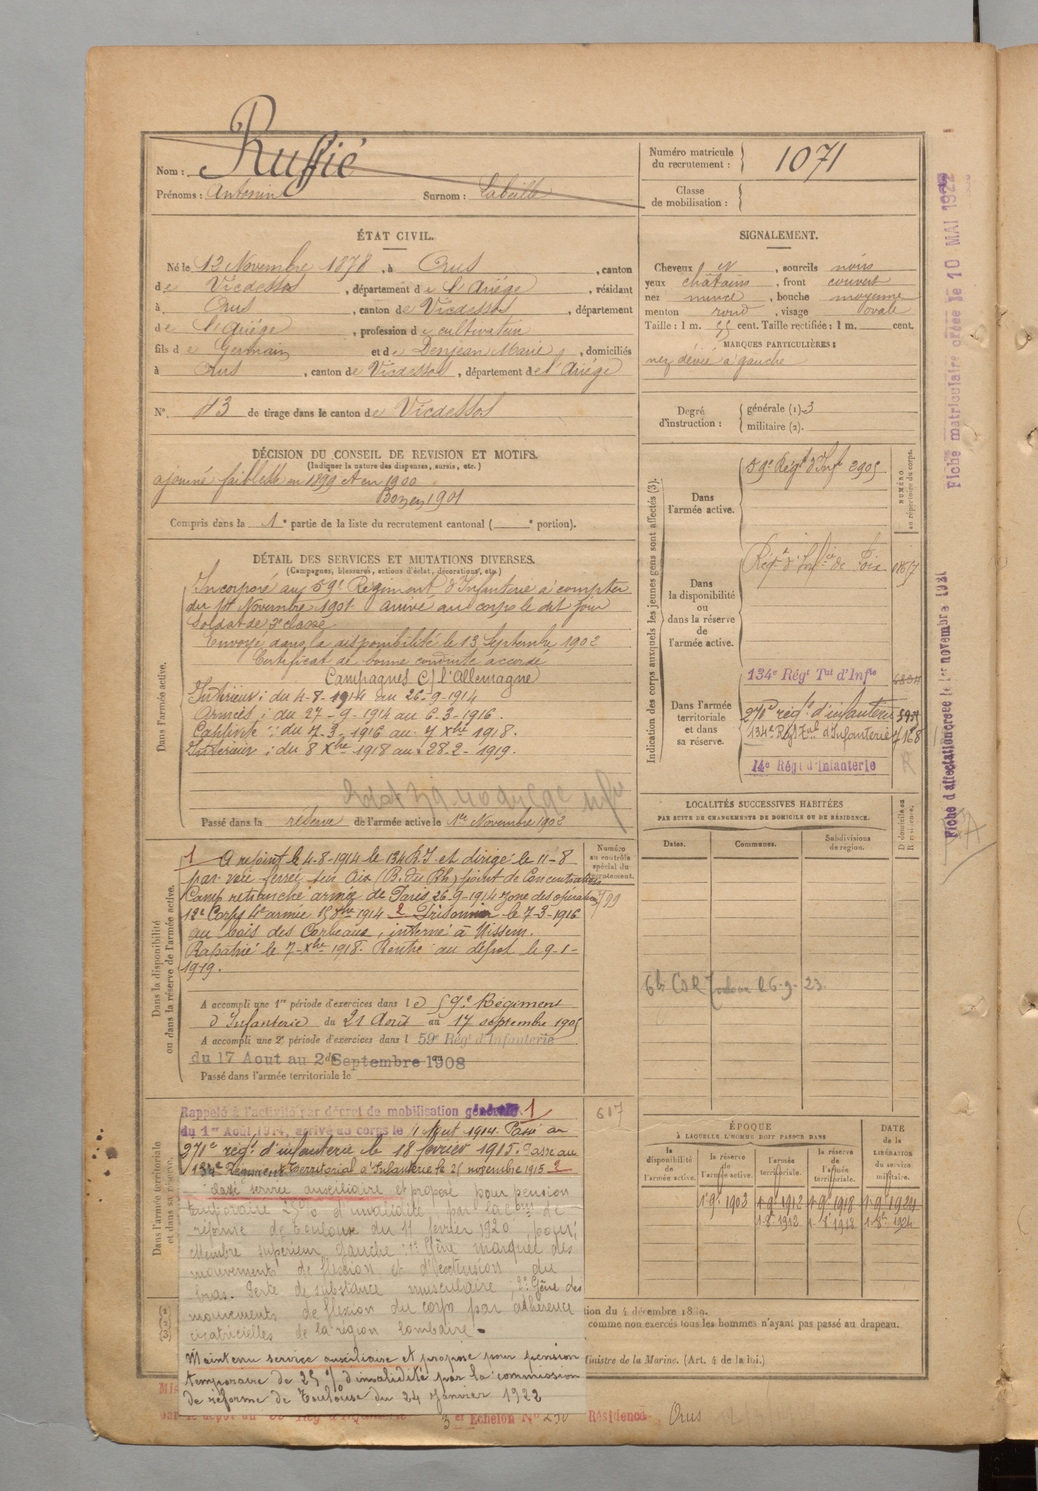 Nom : Ruffié
Prénoms : Antonin Surnom : Labeille
Numéro matricule du recrutement : 1071
Classe de mobilisation :
ÉTAT CIVIL.
Né le 12 Novembre 1878, à Orus, canton
de Vicdessos, département de l'Ariége, résidant
à Orus, canton de Vicdessos, département
de l'Ariége, profession de cultivateur
fils de Germain et de Denjean Marie, domiciliés
à Orus, canton de Vicdessos, département de l'Ariége
N° 43 de tirage dans le canton de Vicdessos
SIGNALEMENT.
Cheveux N, sourcils noirs
yeux châtains, front couvert
nez mince, bouche moyenne
menton rond, visage ovale
Taille : 1 m. 55 cent. Taille rectifiée : 1 m. cent.
MARQUES PARTICULIÈRES :
nez dévié à gauche
Degré d'instruction : générale (1). 3
militaire (2).
DÉCISION DU CONSEIL DE REVISION ET MOTIFS.
(Indiquer la nature des dispenses, sursis, etc.)
ajourné faiblesse en 1899 et en 1900
Bon en 1901
Compris dans la 1e partie de la liste du recrutement cantonal ( e portion).
DÉTAIL DES SERVICES ET MUTATIONS DIVERSES.
(Campagnes, blessures, actions d'éclat, décorations, etc.)
Dans l'armée active.
Incorporé au 59e Régiment d'Infanterie à compter
du 14 Novembre 1901 arrivé au corps le dit jour
soldat de 2e classe
Envoyé dans la disponibilité le 13 Septembre 1902
Certificat de bonne conduite accordé
Campagnes C/ l'Allemagne
Intérieur : du 4-8-1914 au 26-9-1914
Armées : du 27-9-1914 au 6-3-1916.
Captivité : du 7-3-1916 au 7 Xbre 1918.
Intérieur : du 8 Xbre 1918 au 28-2-1919.
Passé dans la réserve de l'armée active le 1er Novembre 1902
Dans la disponibilité ou dans la réserve de l'armée active.
1 A rejoint le 4-8-1914 le 134 R.I et dirigé le 11-8
par voie ferrée sur Aix (B. du Rh) point de Concentration
Camp retranché armée de Paris 26-9-1914 zone des opérations
12e Corps 4e armée 15 8bre 1914 2 Prisonnier le 7-3-1916
au bois des Corbeaux, interné à Missem.
Rapatrié le 7-Xbre 1918. Rentré au dépôt le 9-1-
1919.
Numéro au contrôle spécial du recrutement.
A accompli une 1re période d'exercices dans le 59e Régiment
d'Infanterie du 21 Août au 17 septembre 1905
A accompli une 2e période d'exercices dans l 59e Rég. d'Infanterie
du 17 Aout au 2 Septembre 1908
Passé dans l'armée territoriale le
Dans l'armée territoriale et dans sa réserve.
617
Rappelé à l'activité par décret de mobilisation générale 1
du 1er Août 1914, arrivé au corps le 4 Aout 1914. Passé au
271e rég. d'infanterie le 18 février 1915. Passé au
134e Régiment Territorial d'Infanterie le 25 novembre 1915 2
Classé service auxiliaire et proposé pour pension
temporaire 25% d'invalidité par la com. de
réforme de Toulouse du 11 février 1920 pour :
Membre supérieur gauche : 1° Gêne marquée des
mouvements de flexion et d'extension du
bras. Perte de substance musculaire, 2° Gêne des
mouvements de flexion du corps par adhérence
cicatricielles de la région lombaire.
Maintenu service auxiliaire et proposé pour pension
temporaire de 25% d'invalidité par la commission
de réforme de Toulouse du 24 Janvier 1922
Indication des corps auxquels les jeunes gens sont affectés (3).
NUMÉRO au répertoire du corps.
Dans l'armée active.
59e Régt d'Inf 3905
Dans la disponibilité ou dans la réserve de l'armée active.
Régt d'Infie de Foix 1857
Dans l'armée territoriale et dans sa réserve.
134e Régt Tal d'Infie
271e rég. d'infanterie
134e Régt Tal d'Infanterie 7168
14e Régt d'Infanterie
LOCALITÉS SUCCESSIVES HABITÉES
PAR SUITE DE CHANGEMENTS DE DOMICILE OU DE RÉSIDENCE.
Dates. Communes. Subdivisions de région. D domicile ou R résidence.
ÉPOQUE
À LAQUELLE L'HOMME DOIT PASSER DANS
la disponibilité de l'armée active. la réserve de l'armée active. l'armée territoriale. la réserve de l'armée territoriale. DATE de la LIBÉRATION du service militaire.
1.9.1903 1.9.1912 1.9.1918 1.9.1924
tion du 4 décembre 1889.
comme non exercés tous les hommes n'ayant pas passé au drapeau.
Ministre de la Marine. (Art. 4 de la loi.)
Echelon N° 230 Résidence Orus
Fiche matriculaire créée le 10 MAI 1922
Fiche d'affectation créée le 1er novembre 1921